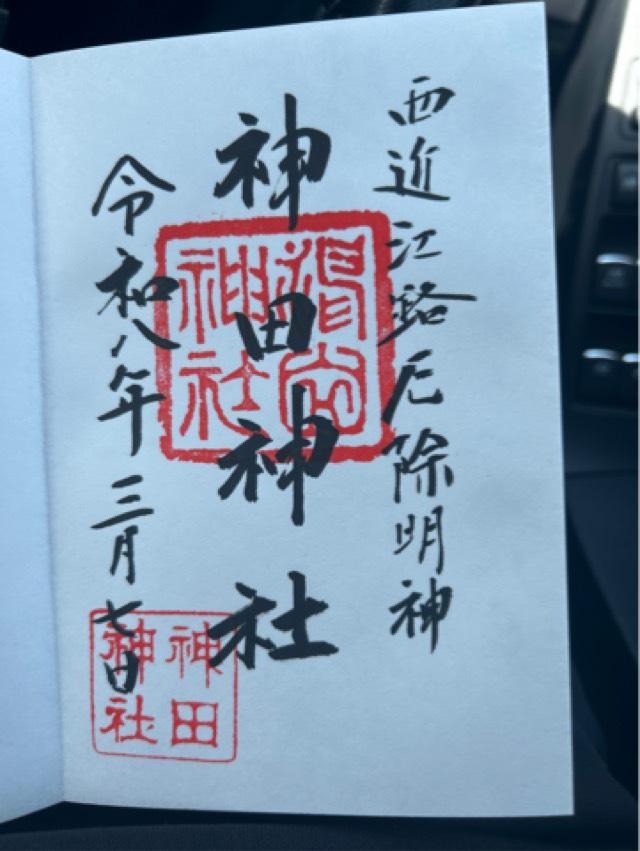 西近江路厄除明神
神田神社
神社
令和八年三月七日
神田
神社